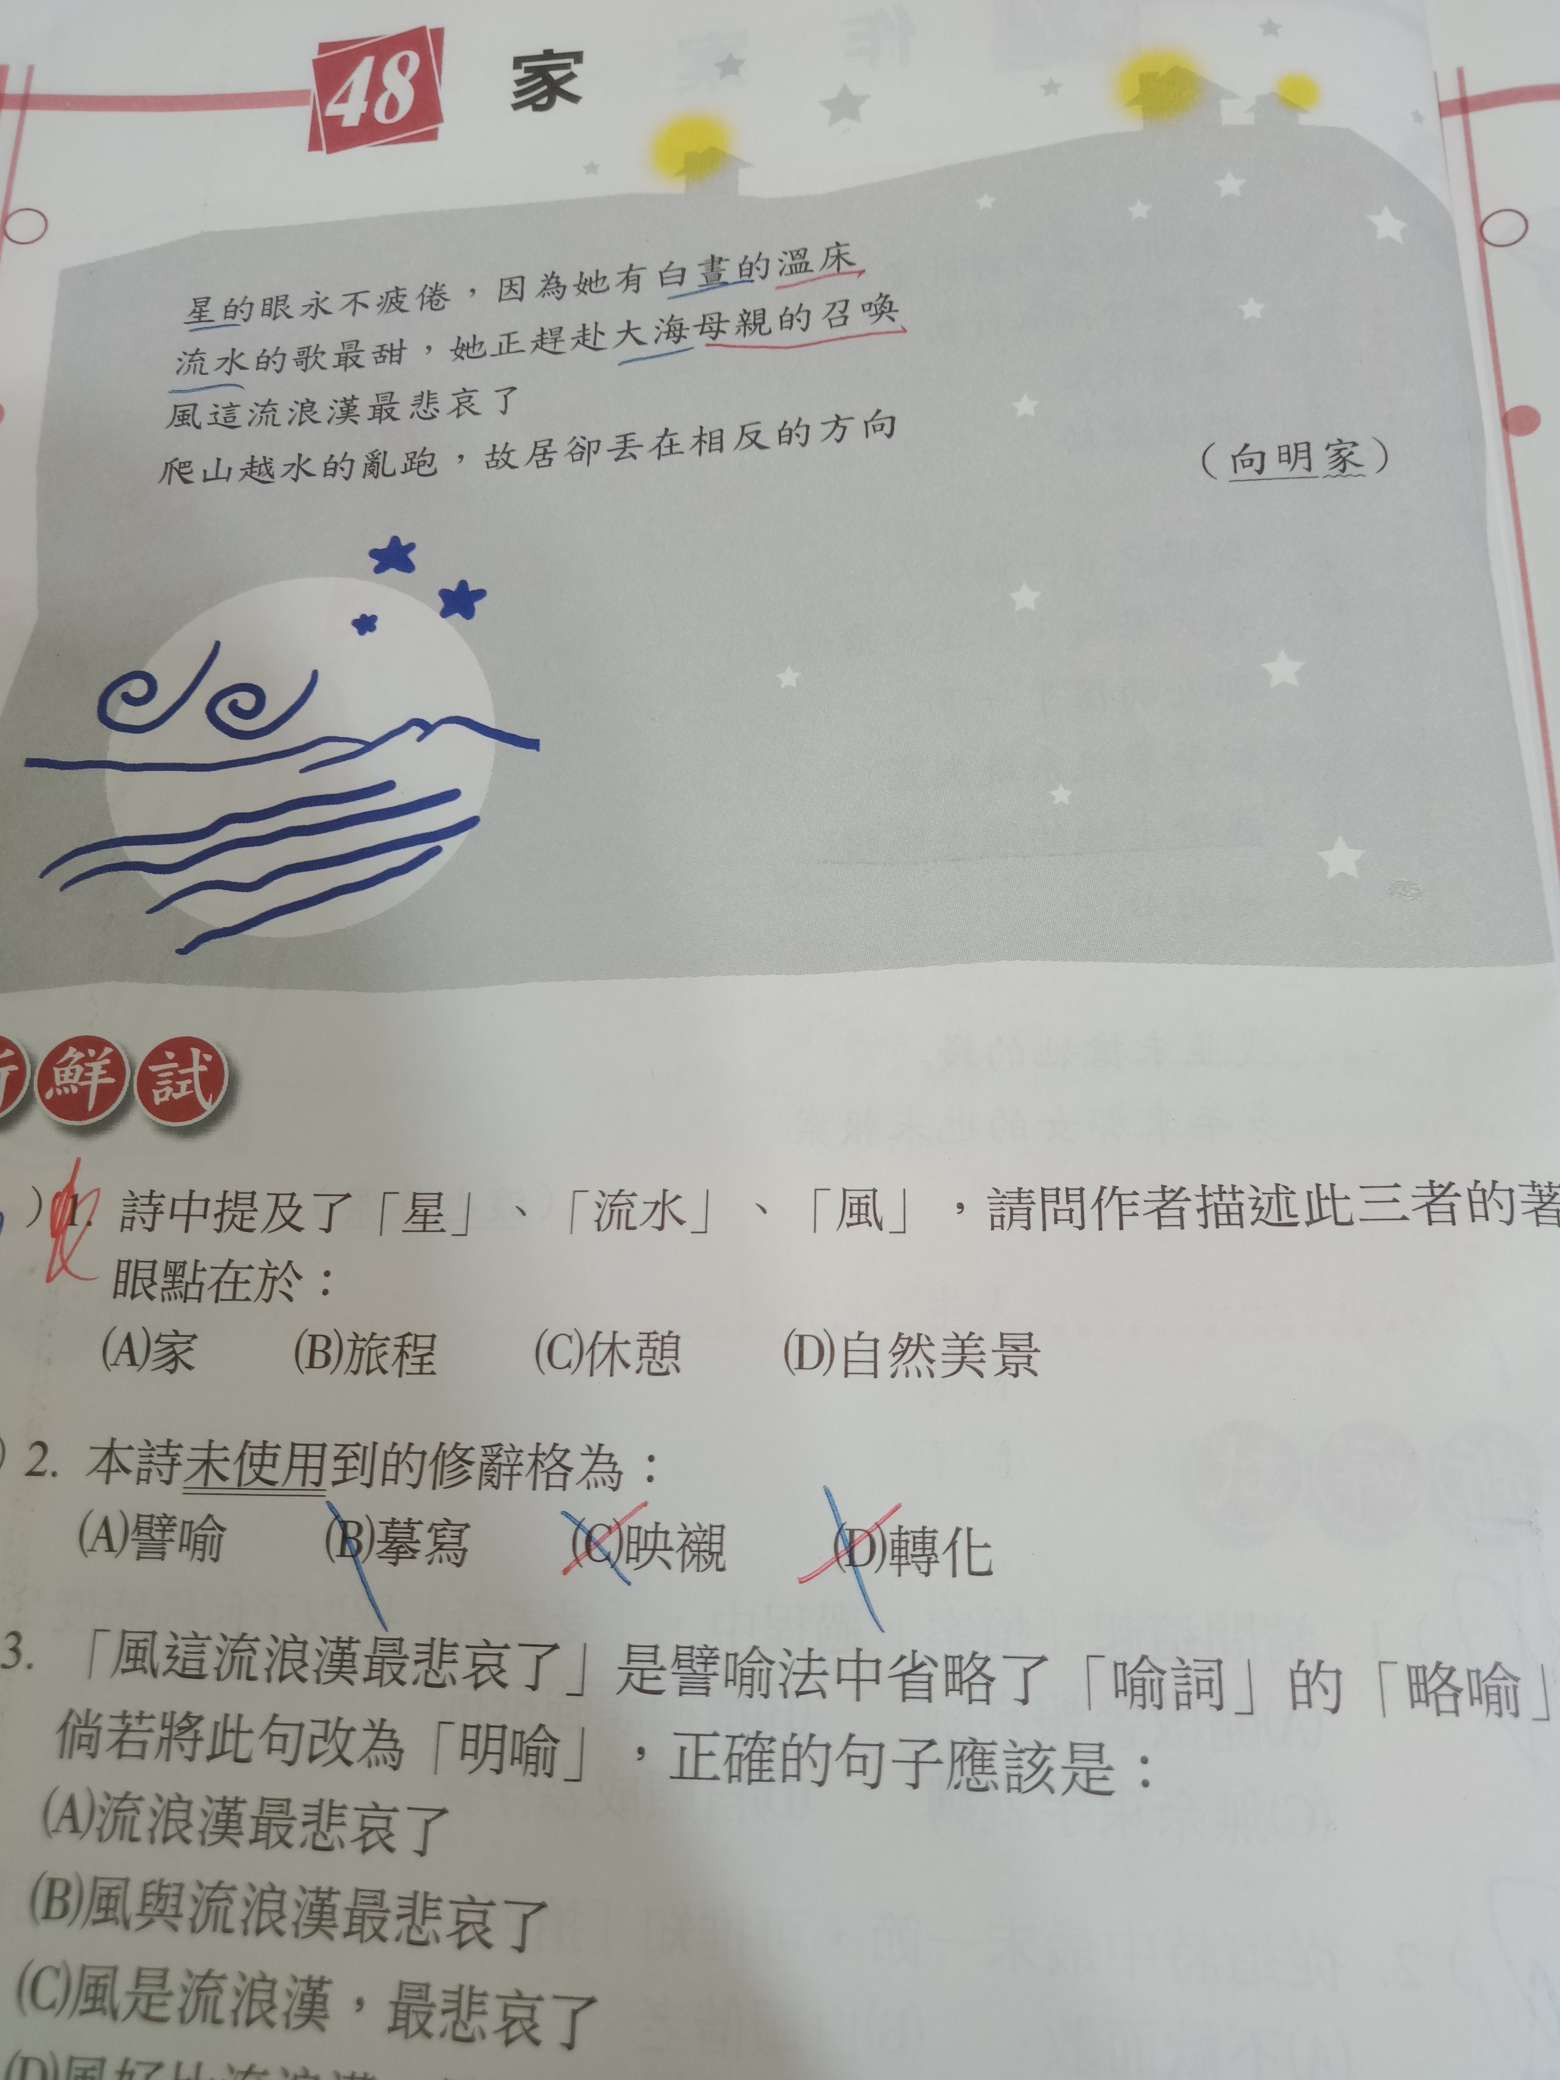 48 家
星的眼永不疲倦，因為她有白晝的溫床
流水的歌最甜，她正趕赴大海母親的召喚
風這流浪漢最悲哀了
爬山越水的亂跑，故居卻丟在相反的方向
（向明家）
鮮試
）1. 詩中提及了「星」、「流水」、「風」，請問作者描述此三者的著
眼點在於：
(A)家 (B)旅程 (C)休憩 (D)自然美景
）2. 本詩未使用到的修辭格為：
(A)譬喻 (B)摹寫 (C)映襯 (D)轉化
3. 「風這流浪漢最悲哀了」是譬喻法中省略了「喻詞」的「略喻」
倘若將此句改為「明喻」，正確的句子應該是：
(A)流浪漢最悲哀了
(B)風與流浪漢最悲哀了
(C)風是流浪漢，最悲哀了
(D)風好比流浪漢